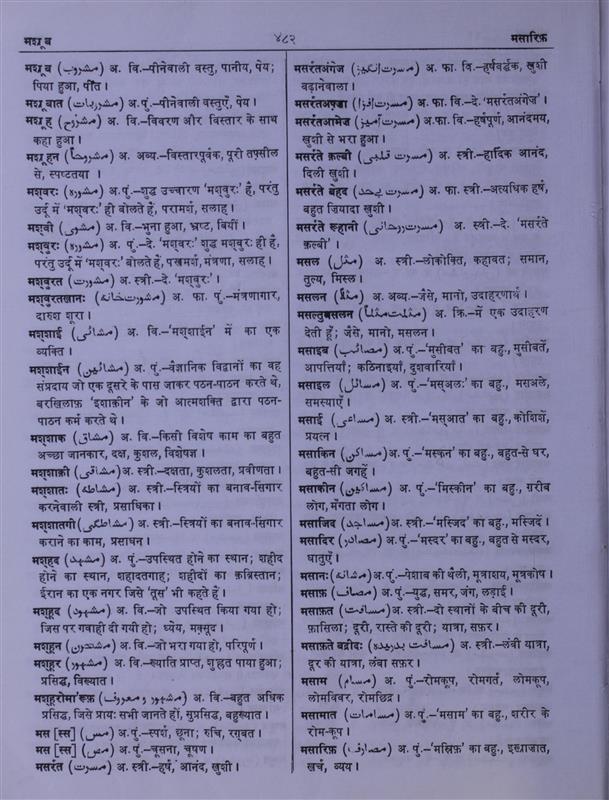 मश्रूब
४८२
मसारिफ़
मश्रूब (مشروب) अ. वि.–पीनेवाली वस्तु, पानीय, पेय;
पिया हुआ, पीत।
मश्रूबात (مشروبات) अ. पुं.–पीनेवाली वस्तुएँ, पेय।
मश्रूह (مشروح) अ. वि.–विवरण और विस्तार के साथ
कहा हुआ।
मश्रूहन (مشروحاً) अ. अव्य.–विस्तारपूर्वक, पूरी तफ़्सील
से, स्पष्टतया ।
मश्वरः (مشورہ) अ. पुं.–शुद्ध उच्चारण 'मश्वुरः' है, परंतु
उर्दू में 'मश्वरः' ही बोलते हैं, परामर्श, सलाह।
मश्वी (مشوی) अ. वि.–भुना हुआ, भ्रष्ट, बिर्यां।
मश्वुरः (مشورہ) अ. पुं.–दे. 'मश्वरः' शुद्ध मश्वुरः ही है,
परंतु उर्दू में 'मश्वरः' बोलते हैं, परामर्श, मंत्रणा, सलाह।
मश्वुरत (مشورت) अ. स्त्री.–दे. 'मश्वुरः'।
मश्वुरतख़ानः (مشورت خانہ) अ. फा. पुं.–मंत्रणागार,
दारुश शूरा।
मश्शाई (مشائی) अ. वि.–'मश्शाईन' में का एक
व्यक्ति ।
मश्शाईन (مشائین) अ. पुं.–वैज्ञानिक विद्वानों का वह
संप्रदाय जो एक दूसरे के पास जाकर पठन-पाठन करते थे,
बरख़िलाफ़ 'इशाक़ीन' के जो आत्मशक्ति द्वारा पठन-
पाठन कर्म करते थे।
मश्शाक़ (مشاق) अ. वि.–किसी विशेष काम का बहुत
अच्छा जानकार, दक्ष, कुशल, विशेषज्ञ।
मश्शाक़ी (مشاقی) अ. स्त्री.–दक्षता, कुशलता, प्रवीणता।
मश्शातः (مشاطہ) अ. स्त्री.–स्त्रियों का बनाव-सिंगार
करनेवाली स्त्री, प्रसाधिका।
मश्शातगी (مشاطگی) अ. स्त्री.–स्त्रियों का बनाव-सिंगार
कराने का काम, प्रसाधन।
मश्हद (مشہد) अ. पुं.–उपस्थित होने का स्थान; शहीद
होने का स्थान, शहादतगाह; शहीदों का क़ब्रिस्तान;
ईरान का एक नगर जिसे 'तूस' भी कहते हैं।
मश्हूद (مشہود) अ. वि.–जो उपस्थित किया गया हो;
जिस पर गवाही दी गयी हो; ध्येय, मक़्सूद।
मश्हून (مشحون) अ. वि.–जो भरा गया हो, परिपूर्ण।
मश्हूर (مشہور) अ. वि.–ख्याति प्राप्त, शुह्रत पाया हुआ;
प्रसिद्ध, विख्यात।
मश्हूरोमा'रूफ़ (مشہور و معروف) अ. वि.–बहुत अधिक
प्रसिद्ध, जिसे प्रायः सभी जानते हों, सुप्रसिद्ध, बहुख्यात।
मस [स्स] (مس) अ. पुं.–स्पर्श, छूना; रुचि, रग़्बत।
मस [स्स] (مص) अ. पुं.–चूसना, चूषण।
मसर्रत (مسرت) अ. स्त्री.–हर्ष, आनंद, ख़ुशी।
मसर्रतअंगेज़ (مسرت انگیز) अ. फा. वि.–हर्षवर्द्धक, ख़ुशी
बढ़ानेवाला।
मसर्रतअफ़्ज़ा (مسرت افزا) अ. फा. वि.–दे. 'मसर्रतअंगेज़'।
मसर्रतआमेज़ (مسرت آمیز) अ. फा. वि.–हर्षपूर्ण, आनंदमय,
ख़ुशी से भरा हुआ।
मसर्रते क़ल्बी (مسرت قلبی) अ. स्त्री.–हार्दिक आनंद,
दिली ख़ुशी।
मसर्रते बेहद (مسرت بےحد) अ. फा. स्त्री.–अत्यधिक हर्ष,
बहुत ज़ियादा ख़ुशी।
मसर्रते रूहानी (مسرت روحانی) अ. स्त्री.–दे. 'मसर्रते
क़ल्बी'।
मसल (مثل) अ. स्त्री.–लोकोक्ति, कहावत; समान,
तुल्य, मिस्ल।
मसलन (مثلاً) अ. अव्य.–जैसे, मानो, उदाहरणार्थ।
मसल्तुमसलन (مثلت مثلاً) अ. क्रि.–में एक उदाहरण
देती हूँ; जैसे, मानो, मसलन।
मसाइब (مصائب) अ. पुं.–'मुसीबत' का बहु., मुसीबतें,
आपत्तियाँ; कठिनाइयाँ, दुशवारियाँ।
मसाइल (مسائل) अ. पुं.–'मस्अलः' का बहु., मसअले,
समस्याएँ।
मसाई (مساعی) अ. स्त्री.–'मस्आत' का बहु., कोशिशें,
प्रयत्न।
मसाकिन (مساکن) अ. पुं.–'मस्कन' का बहु., बहुत-से घर,
बहुत-सी जगहें।
मसाकीन (مساکین) अ. पुं.–'मिस्कीन' का बहु., ग़रीब
लोग, मँगता लोग।
मसाजिद (مساجد) अ. स्त्री.–'मस्जिद' का बहु., मस्जिदें।
मसादिर (مصادر) अ. पुं.–'मस्दर' का बहु., बहुत से मस्दर,
धातुएँ।
मसानः (مثانہ) अ. पुं.–पेशाब की थैली, मूत्राशय, मूत्रकोष।
मसाफ़ (مصاف) अ. पुं.–युद्ध, समर, जंग, लड़ाई।
मसाफ़त (مسافت) अ. स्त्री.–दो स्थानों के बीच की दूरी,
फ़ासिला; दूरी, रास्ते की दूरी; यात्रा, सफ़र।
मसाफ़ते बईदः (مسافت بعیدہ) अ. स्त्री.–लंबी यात्रा,
दूर की यात्रा, लंबा सफ़र।
मसाम (مسام) अ. पुं.–रोमकूप, रोमगर्त, लोमकूप,
लोमविवर, रोमछिद्र।
मसामात (مسامات) अ. पुं.–'मसाम' का बहु., शरीर के
रोम-कूप।
मसारिफ़ (مصارف) अ. पुं.–'मस्रिफ़' का बहु., इख़ाजात,
ख़र्च, व्यय।